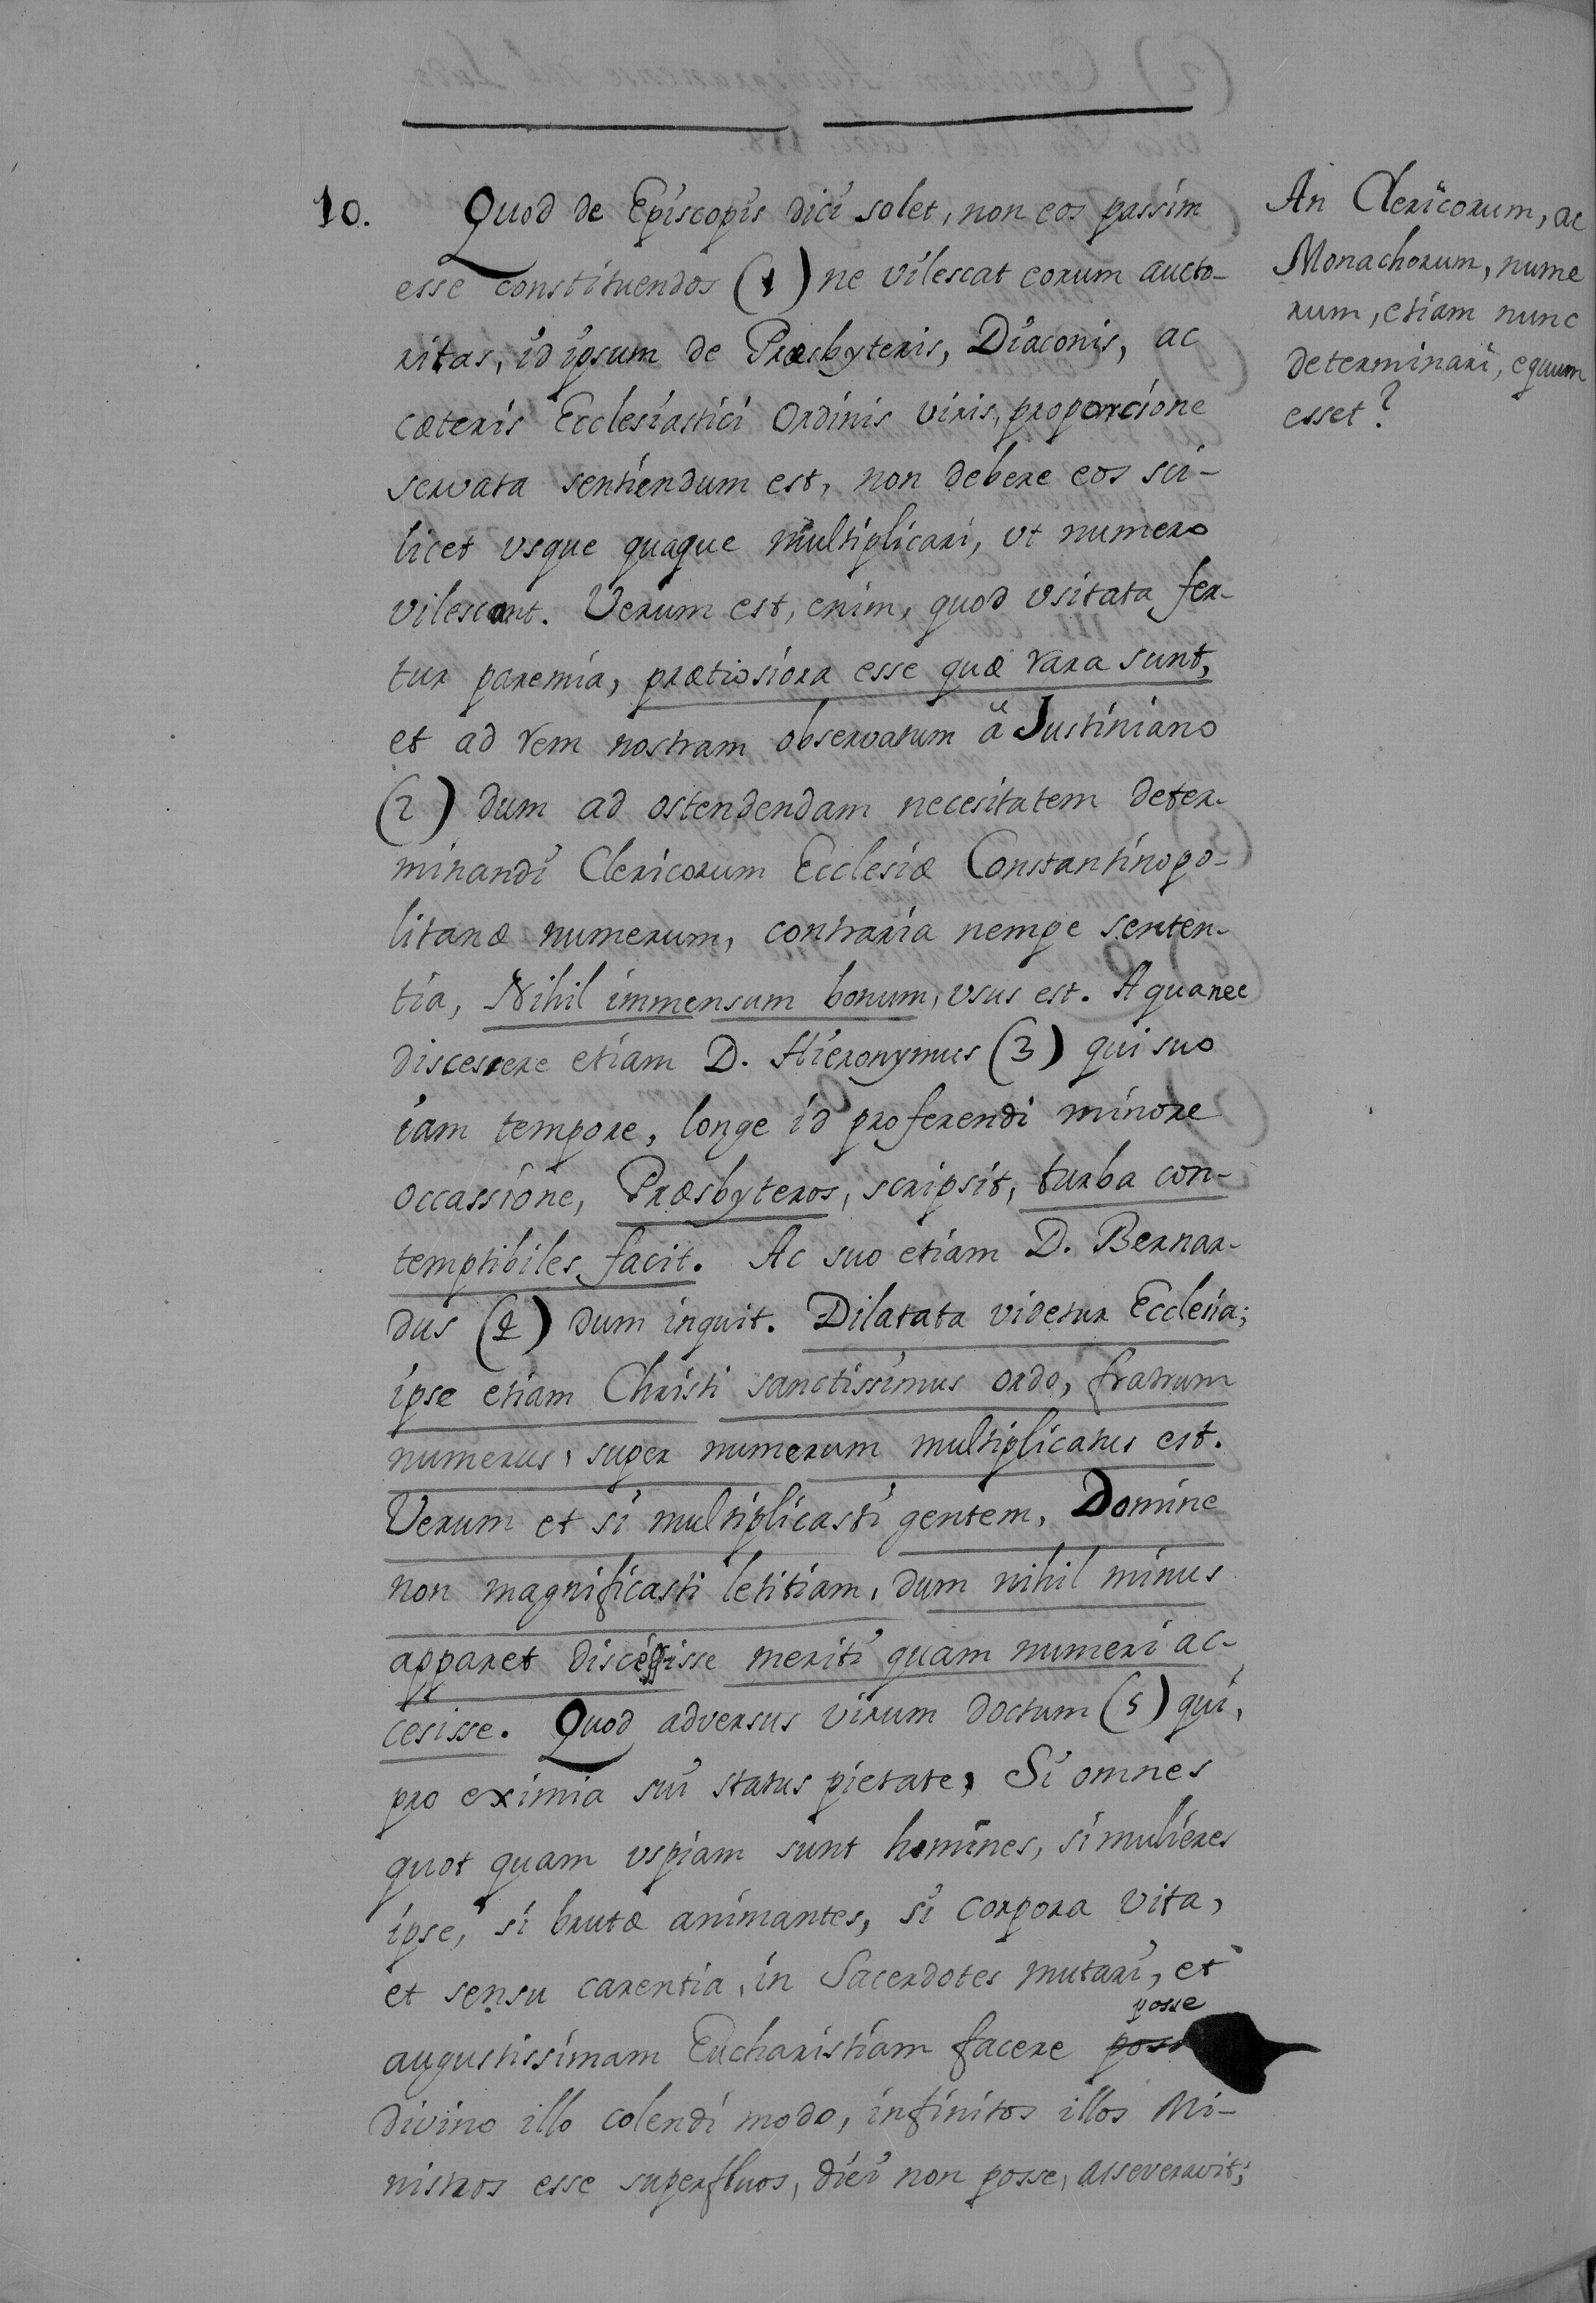 10. Quod de Episcopis dici solet, non eos passim
esse constituendos (1) ne vilescat eorum aucto-
ritas, id ipsum de Præsbyteris, Diaconis, ac
cæteris Ecclesiastici Ordinis viris, proporcione
servata sentiendum est, non debere eos sci-
licet usque quaque multiplicari, ut numero
vilescant. Verum est, enim, quod usitata fer-
tur paremia, prætiosiora esse quæ rara sunt,
et ad rem nostram observatum ä Justiniano
(2) dum ad ostendendam necesitatem deter-
minandi Clericorum Ecclesiæ Constantinopo-
litanæ numerum, contraria nempe senten-
tia, Nihil immensum bonum, usus est. A qua nec
discessere etiam D. Hieronymus (3) qui suo
iam tempore, longe id proferendi minore
occassione, Præsbyteros, scripsit, turba con-
temptibiles facit. Ac suo etiam D. Bernar-
dus (4) dum inquit. Dilatata videtur Ecclesia;
ipse etiam Christi sanctissimus ordo, fratrum
numerus, super numerum multiplicatus est.
Verum et si multiplicasti gentem, Domine
non magnificasti letitiam, dum nihil minus
apparet discessisse meriti quam numeri ac-
cesisse. Quod adversus virum doctum (5) qui,
pro eximia sui status pietate, Si omnes
quot quam uspiam sunt homines, si mulieres
ipse, si brutæ animantes, si corpora vita,
et sensu carentia, in Sacerdotes mutari, et
posse
augustissimam Eucharistiam facere poss
divino illo colendi modo, infinitos illos Mi-
nistros esse superfluos, dici non posse, asseveravit;
An Clericorum, ac
Monachorum, nume
rum, etiam nunc
determinari, equum
esset?